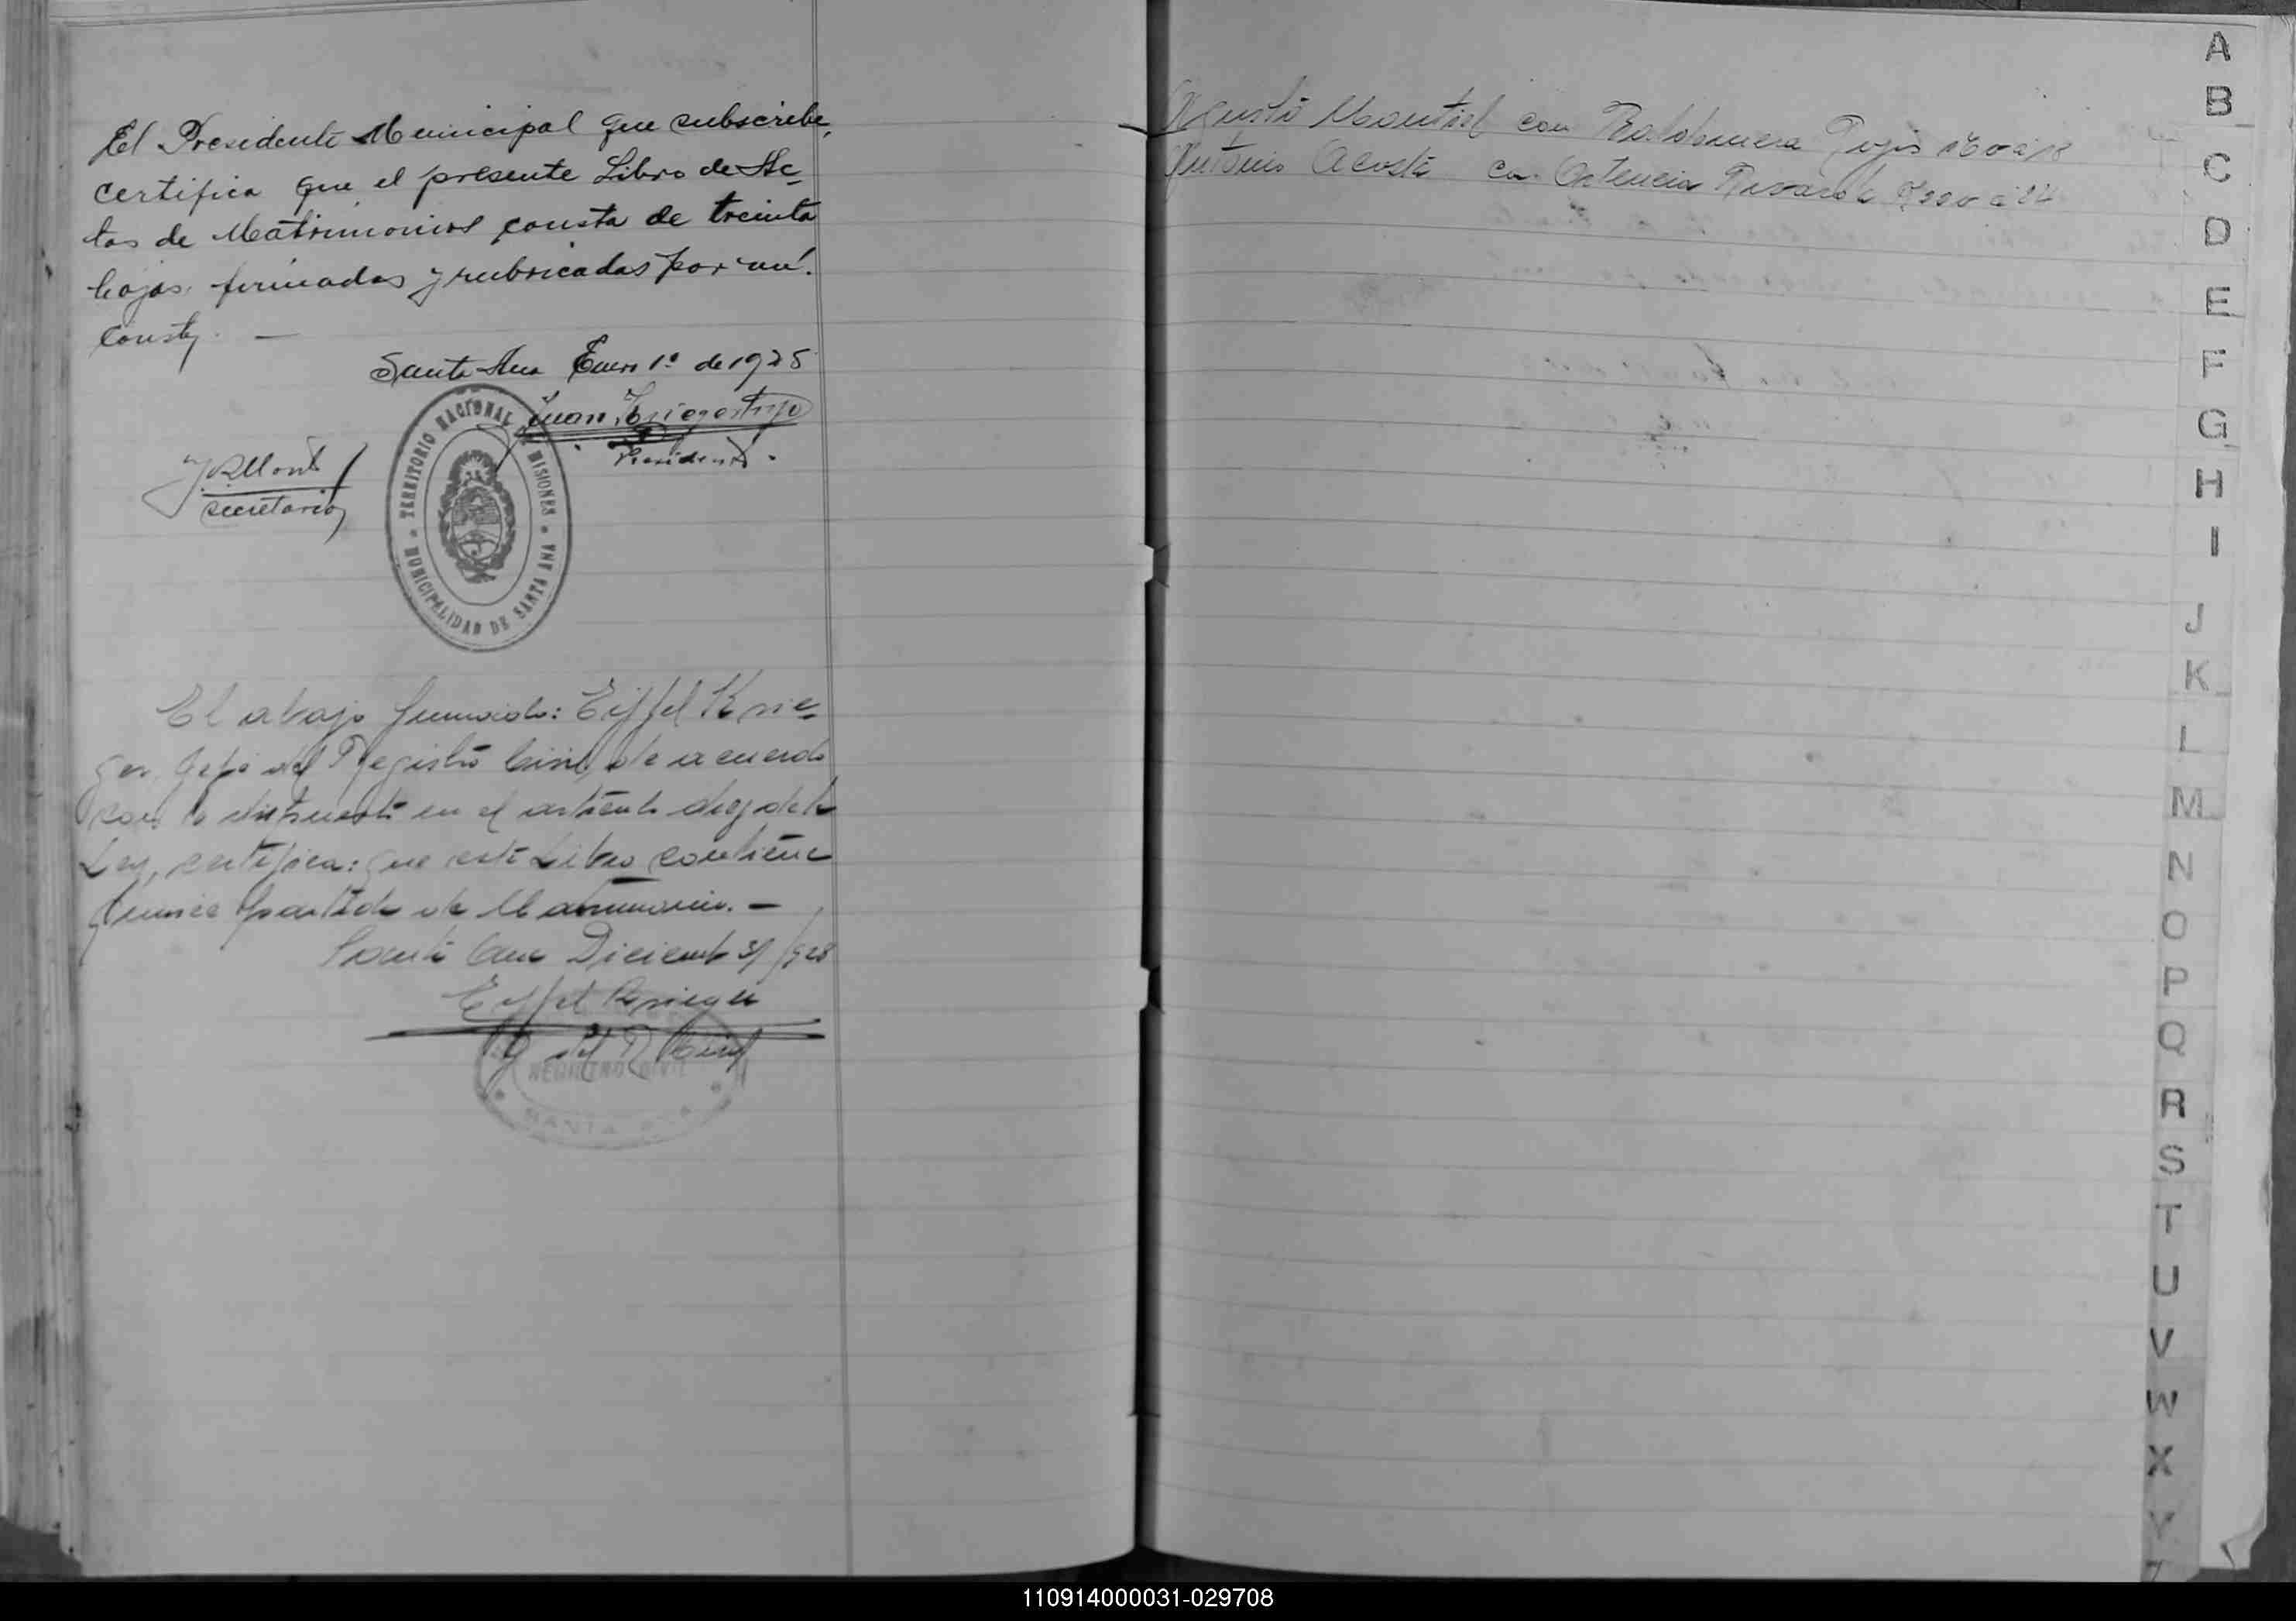 El Presidente Municipal que subscribe,
certifica que el presente Libro de Ac-
tas de Matrimonios consta de treinta
hojas firmadas y rubricadas por mí.
Conste. —
Santa Ana Enero 1º de 1925
Juan
Presidente.
Secretario
TERRITORIO NACIONAL DE MISIONES
MUNICIPALIDAD DE SANTA ANA
El abajo firmado: Eiffel Krie-
ger, Jefe del Registro Civil, de acuerdo
con lo dispuesto en el articulo diez de la
Ley, certifica: que este Libro contiene
quince partidas de Matrimonio. —
Santa Ana Diciembre 31/928
Eiffel Krieger
J. del R. Civil
REGISTRO CIVIL
SANTA ANA
Agusto Montiel con Bartolomera
Antonio Acosta con Ortencia
A
B
C
D
E
F
G
H
I
J
K
L
M
N
O
P
Q
R
S
T
U
V
W
X
Y
Z
110914000031-029708